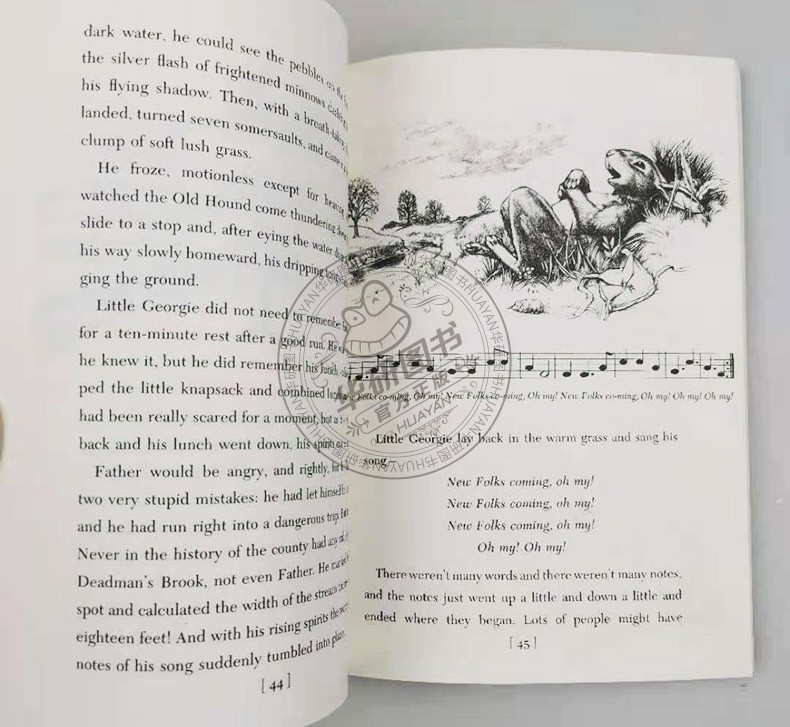 dark water, he could see the pebbles on the
the silver flash of frightened minnows
his flying shadow. Then, with a
landed, turned seven somersaults, and came
clump of soft lush grass.
He froze, motionless except for heaving
watched the Old Hound come thundering
slide to a stop and, after eying the water
his way slowly homeward, his dripping
ging the ground.
Little Georgie did not need to remember
for a ten-minute rest after a good run. He
he knew it, but he did remember his lunch,
ped the little knapsack and combined
had been really scared for a moment, but
back and his lunch went down, his spirits
Father would be angry, and rightly, for
two very stupid mistakes: he had let himself
and he had run right into a dangerous trap.
Never in the history of the county had any
Deadman's Brook, not even Father. He
spot and calculated the width of the stream
eighteen feet! And with his rising spirits the
notes of his song suddenly tumbled into place.
[ 44 ]
New Folks co-ming, Oh my! New Folks co-ming, Oh my! New Folks co-ming, Oh my! Oh my! Oh my!
Little Georgie lay back in the warm grass and sang his
song—
New Folks coming, oh my!
New Folks coming, oh my!
New Folks coming, oh my!
Oh my! Oh my!
There weren't many words and there weren't many notes,
and the notes just went up a little and down a little and
ended where they began. Lots of people might have
[ 45 ]
华研图书
官方正版
华研图书HUAYAN华研图书HUAYAN华研图书HUAYAN